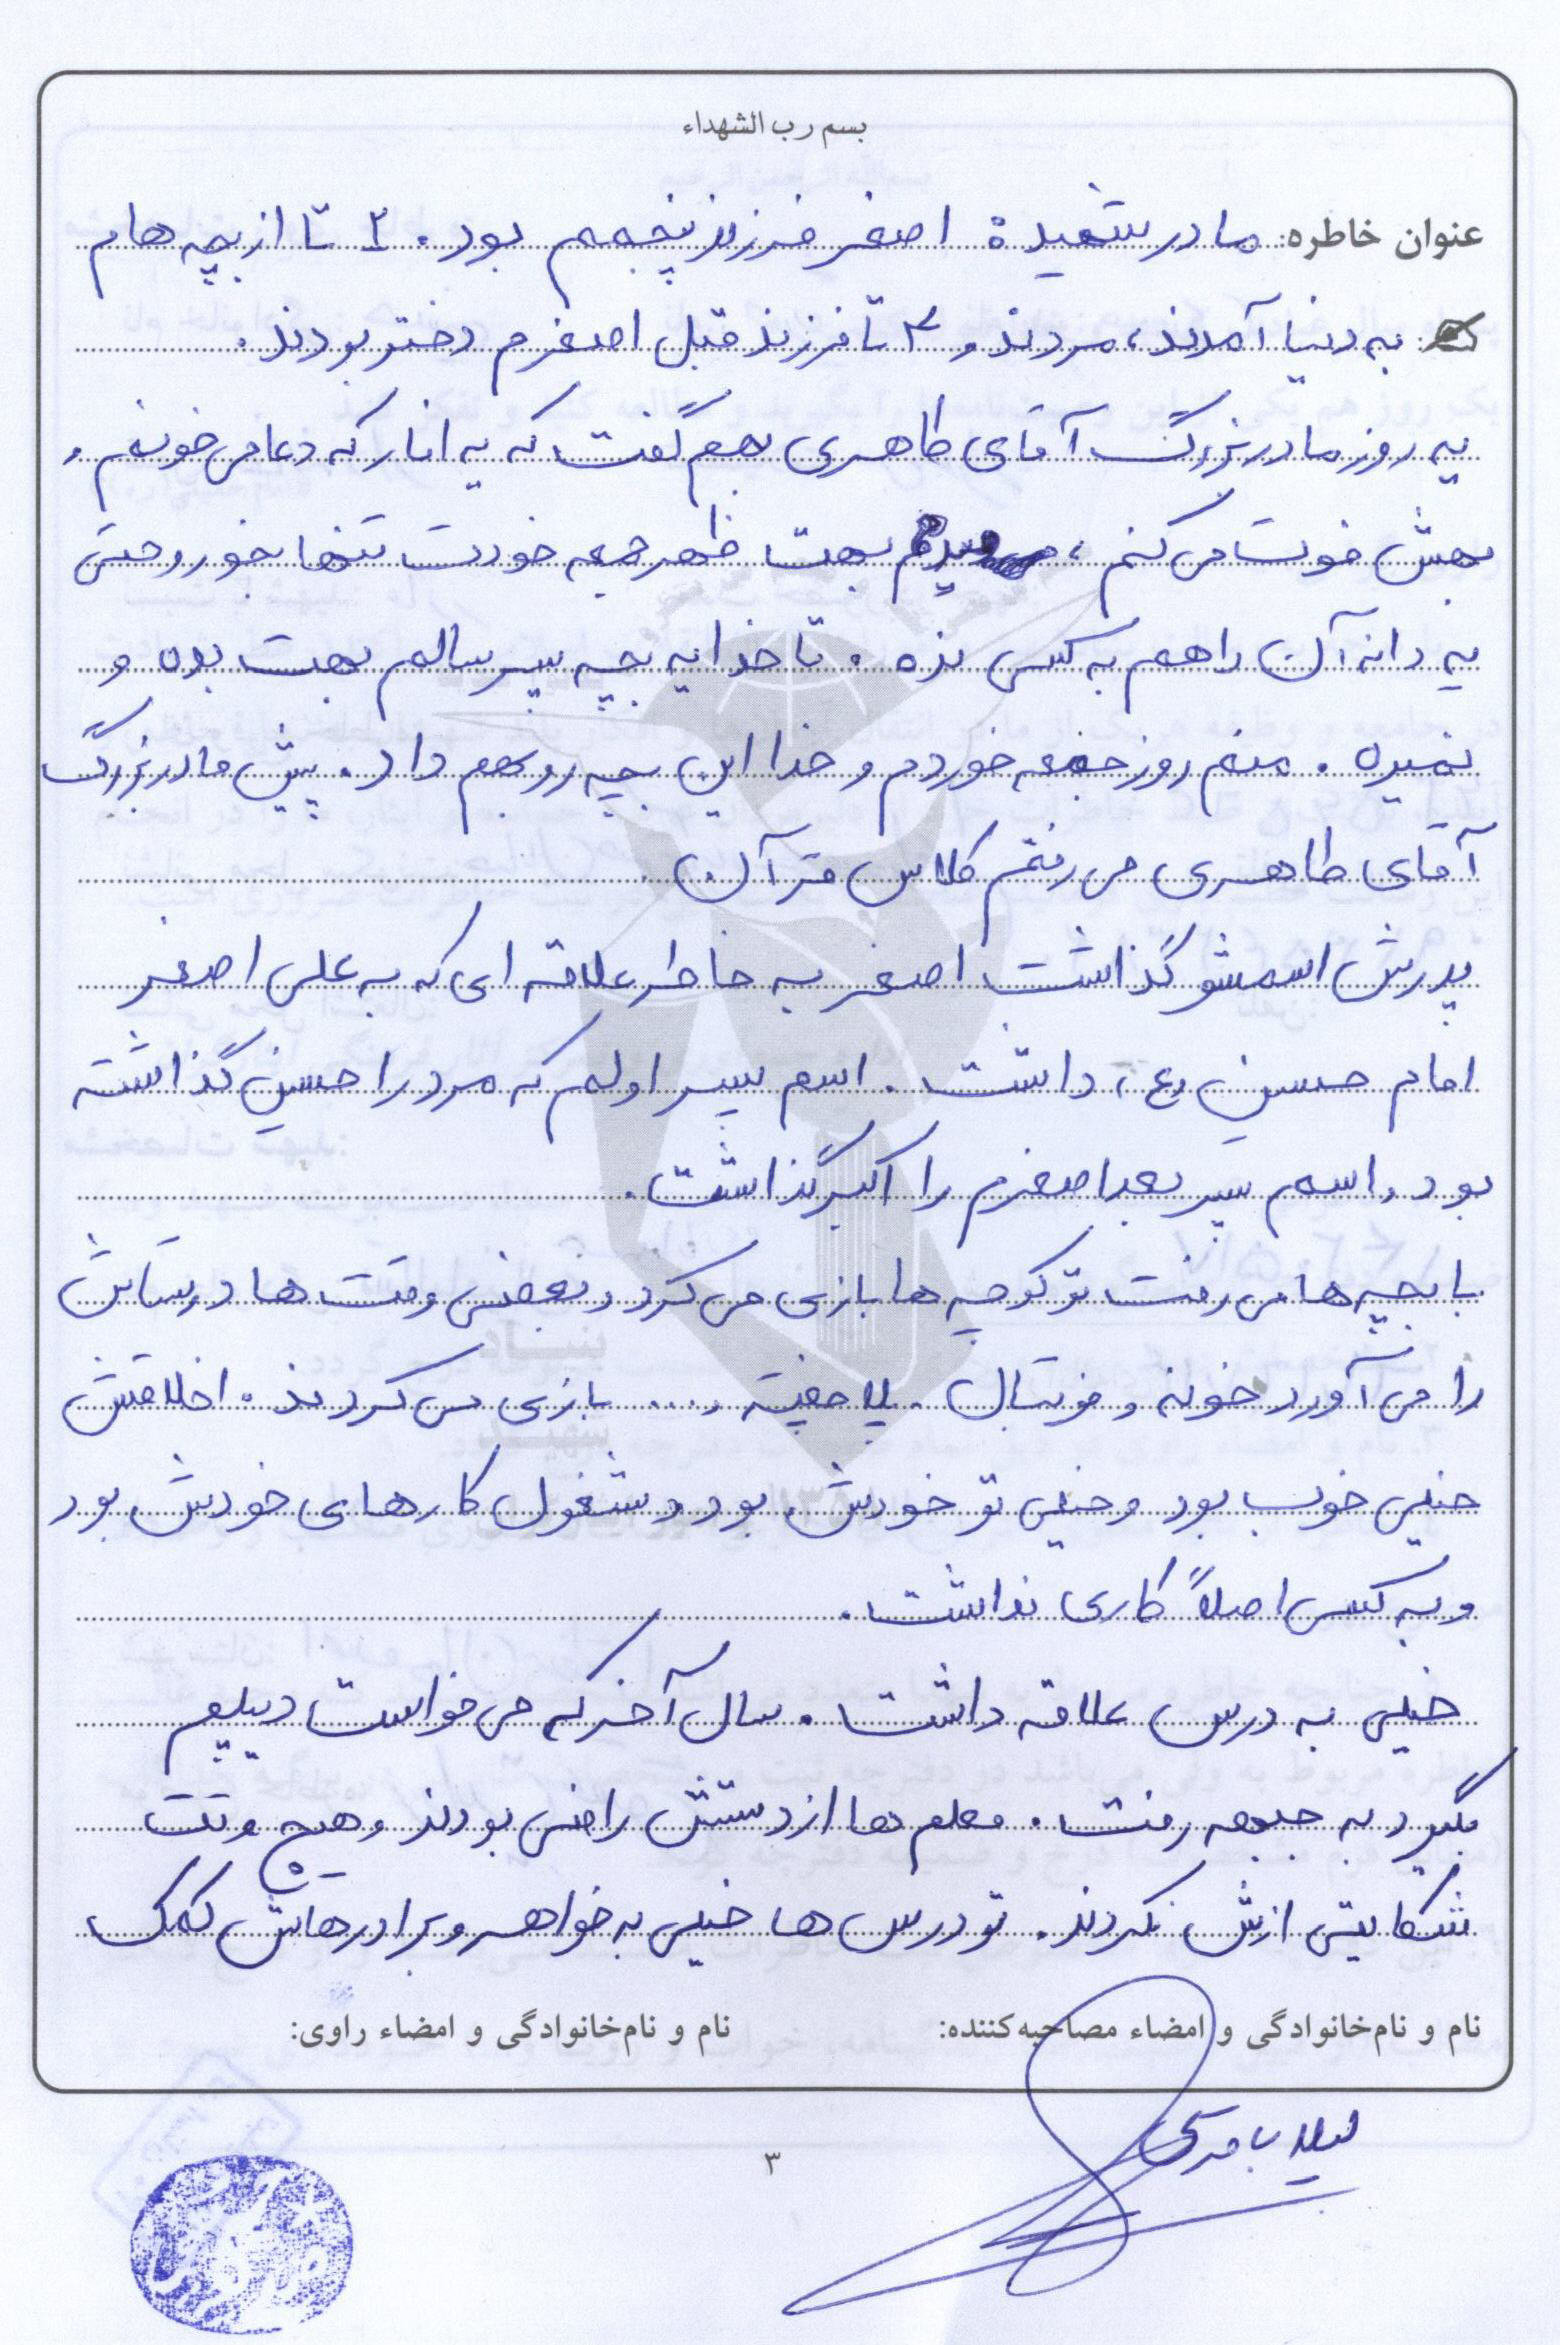 بسم رب الشهداء
عنوان خاطره: مادر شهید: اصغر فرزند پنجمم بود. ۲ تا از بچه هام
به دنیا آمدند، مردند و ۳ تا فرزند قبل اصغرم دختر بودند.
یه روز مادربزرگ آقای طاهری بهم گفت که یه انار که دعا می خونم و
بهش فوت می کنم، میدم بهت ظهر جمعه خودت تنها بخور و حتی
یه دانه آن را هم به کسی نده. تا خدا یه بچه پسر سالم بهت بده و
نمیره. منم روز جمعه خوردم و خدا این بچه رو بهم داد. پیش مادربزرگ
آقای طاهری می رفتم کلاس قرآن.
پدرش اسمشو گذاشت اصغر به خاطر علاقه ای که به علی اصغر
امام حسین (ع) داشت. اسم پسر اولم که مرد را حسین گذاشته
بود و اسم پسر بعد اصغرم را اکبر گذاشت.
با بچه ها می رفت تو کوچه ها بازی می کرد و بعضی وقت ها دوستاش
را می آورد خونه و فوتبال. یلا جفیه و.... بازی می کردند. اخلاقش
خیلی خوب بود و خیلی تو خودش بود و مشغول کارهای خودش بود
و به کسی اصلاً کاری نداشت.
خیلی به درس علاقه داشت. سال آخر که می خواست دیپلم
بگیرد به جبهه رفت. معلم ها از دستش راضی بودند و هیچ وقت
شکایتی ازش نکردند. تو درس ها خیلی به خواهر و برادرهاش کمک
نام و نام‌خانوادگی و امضاء مصاحبه‌کننده:
نام و نام‌خانوادگی و امضاء راوی:
۳